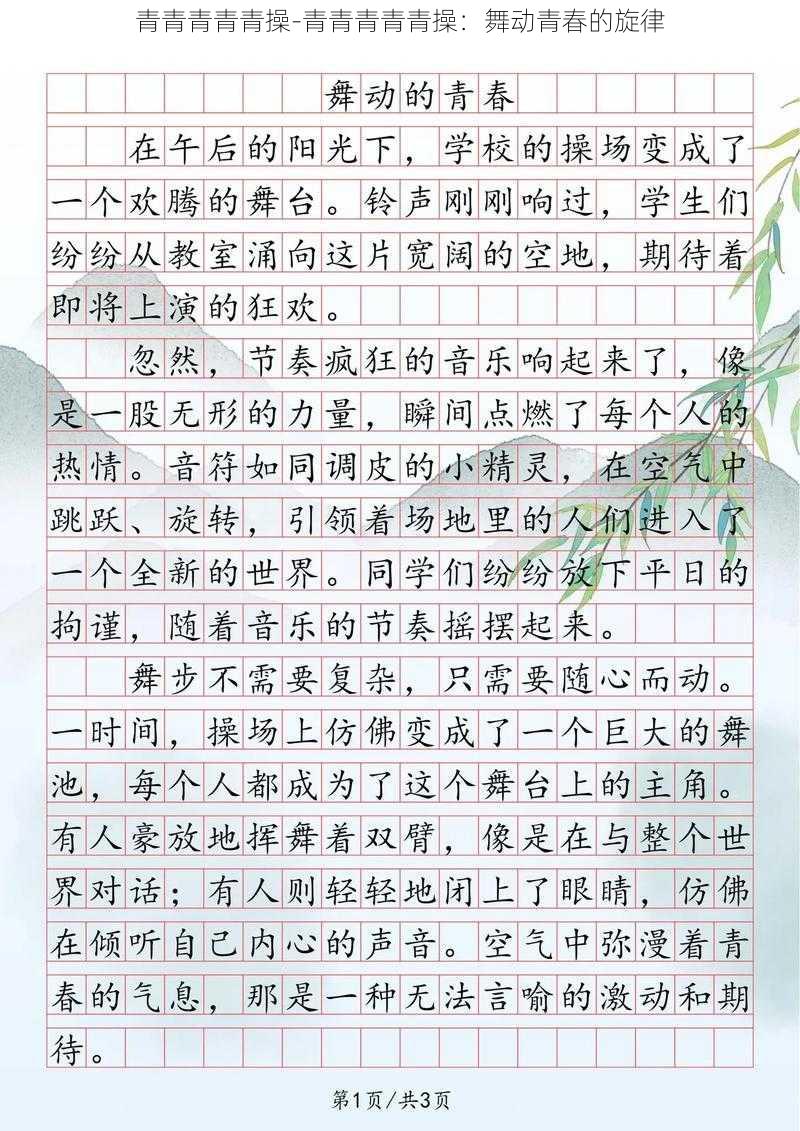 青青青青青操-青青青青青操：舞动青春的旋律
舞动的青春
在午后的阳光下，学校的操场变成了
一个欢腾的舞台。铃声刚刚响过，学生们
纷纷从教室涌向这片宽阔的空地，期待着
即将上演的狂欢。
忽然，节奏疯狂的音乐响起来了，像
是一股无形的力量，瞬间点燃了每个人的
热情。音符如同调皮的小精灵，在空气中
跳跃、旋转，引领着场地里的人们进入了
一个全新的世界。同学们纷纷放下平日的
拘谨，随着音乐的节奏摇摆起来。
舞步不需要复杂，只需要随心而动。
一时间，操场上仿佛变成了一个巨大的舞
池，每个人都成为了这个舞台上的主角。
有人豪放地挥舞着双臂，像是在与整个世
界对话；有人则轻轻地闭上了眼睛，仿佛
在倾听自己内心的声音。空气中弥漫着青
春的气息，那是一种无法言喻的激动和期
待。
第1页/共3页